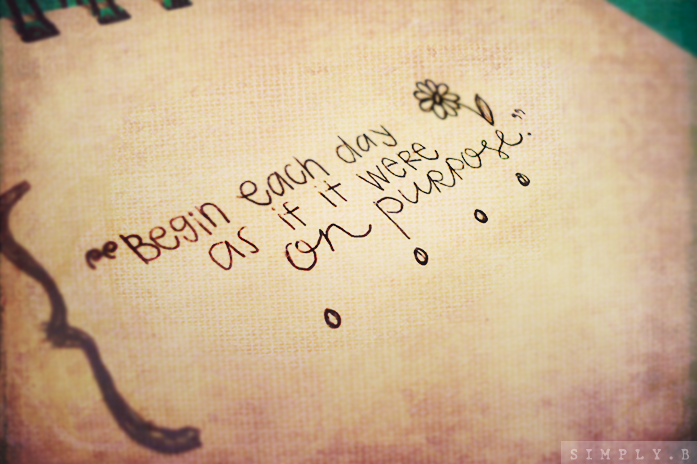 "Begin each day
as if it were
on purpose."
SIMPLY.B